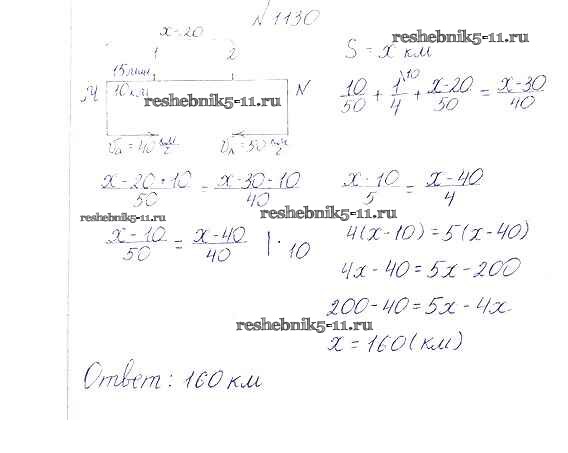 N 1130
x-20
1 2
S = x км
15 мин
10 км
N
10/50 + 1/4 \10 + x-20/50 = x-30/40
= 40 км/ч = 50 км/ч
x-20+10/50 = x-30-10/40
x-10/5 = x-40/4
x-10/50 = x-40/40 | · 10
4(x-10) = 5(x-40)
4x-40 = 5x-200
200-40 = 5x-4x
x = 160 (км)
Ответ: 160 км
reshebnik5-11.ru
reshebnik5-11.ru
reshebnik5-11.ru
reshebnik5-11.ru
reshebnik5-11.ru